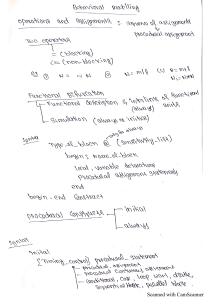 Behavioral modelling
operations and assignments : sequence of assignments
procedural assignment
Two operators
= (blocking)
<= (non-blocking)
Functional
Functional description & interface of functional
(always) units
Simulation (always or initial)
Syntax
Type_of_block @ (sensitivity_list)
begin : name_of_block
local variable declarations
Procedural assignment statements
end
begin - end construct
procedural constructs
Initial
always
Syntax
Initial
[timing_control] procedural_statement
procedural assignment
procedural continuous assignment
conditional, case, loop, wait, disable,
sequential block, parallel block
Scanned with CamScanner